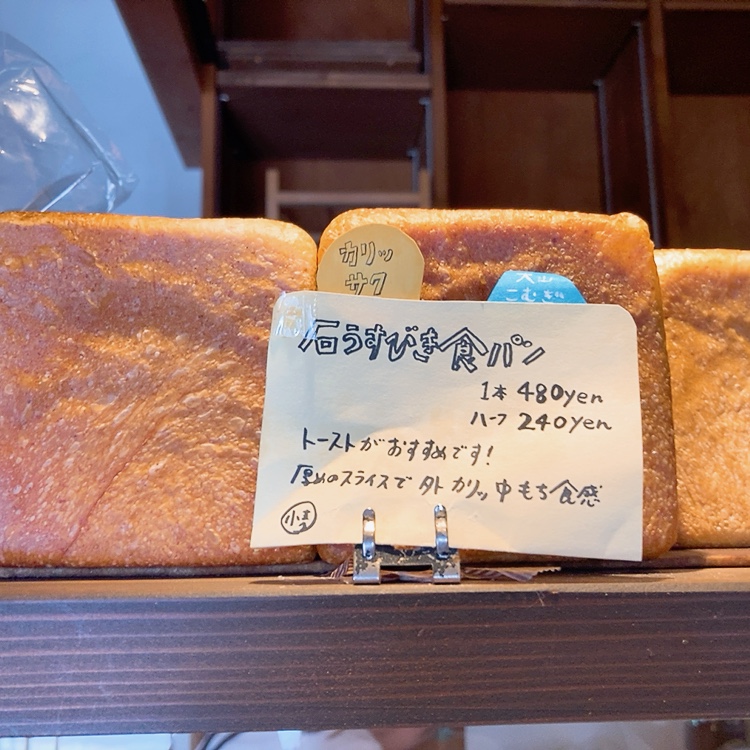 カリッ
サク
大山
こむぎ
石うすびき食パン
1本 480yen
ハーフ 240yen
トーストがおすすめです!
厚めのスライスで 外カリッ 中もち食感
小麦